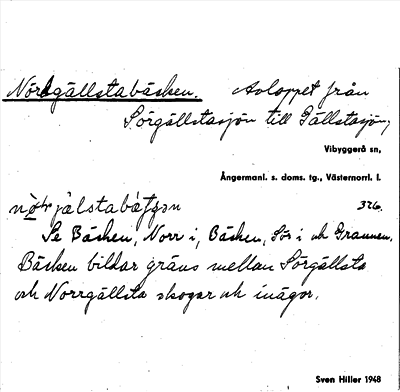 Norrgällstabäcken. Avloppet från
Sörgällstasjön till Gällstasjön,
Vibyggerå sn,
Ångermanl. s. doms. tg., Västernorrl. l.
326.
Se Bäcken, Norr i, Bäcken, Sör i och Grannen.
Bäcken bildar gräns mellan Sörgällsta
och Norrgällsta skogar och inägor.
Sven Hiller 1948